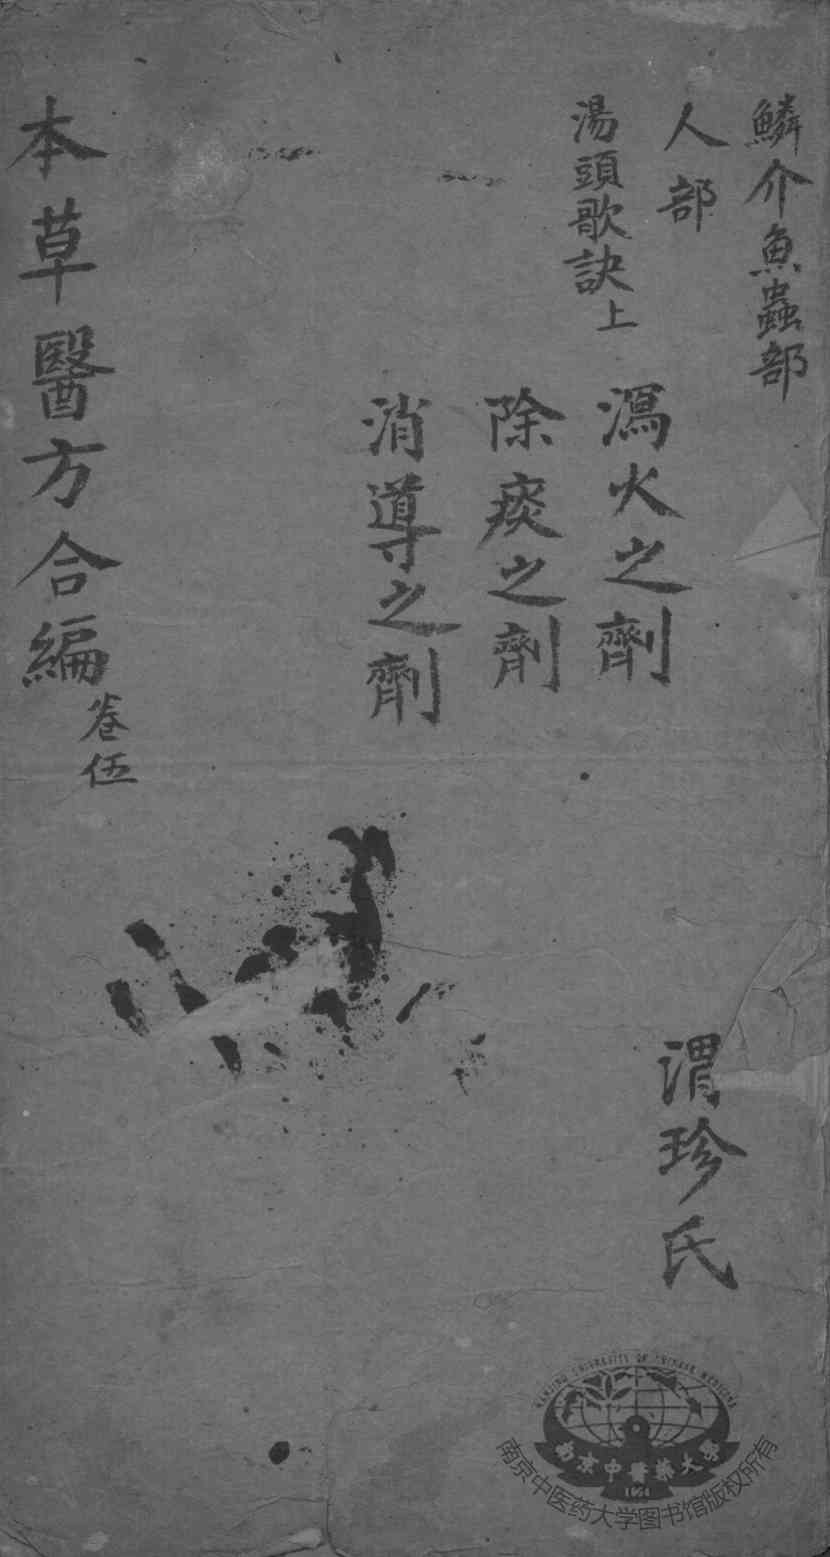 鱗介魚蟲部
人部
湯頭歌訣上
瀉火之劑
除痰之劑
消導之劑
本草醫方合編
卷伍
渭珍氏
NANJING UNIVERSITY OF CHINESE MEDICINE
南京中醫藥大學
1954
南京中医药大学图书馆版权所有